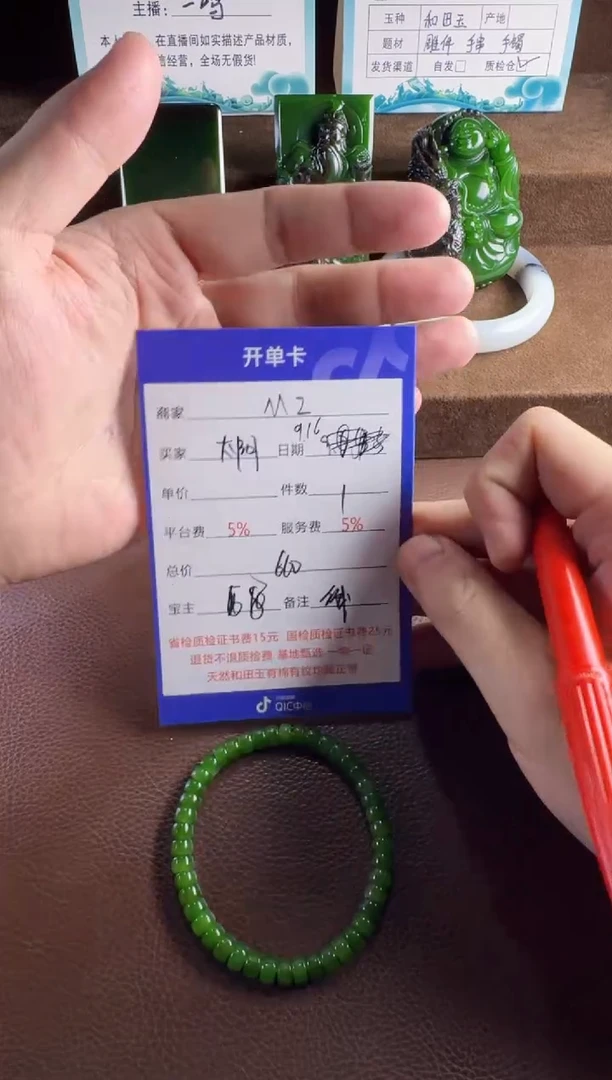 主播：一鸣
在直播间如实描述产品材质，
信经营，全场无假货!
玉种 和田玉 产地
题材 雕件 手串 手镯
发货渠道 自发□ 质检仓☑
开单卡
商家 M2
买家 太阳 日期 916
单价 件数 1
平台费 5% 服务费 5%
总价 660
宝主 备注
省检质检证书费15元 国检质检证书费25元
退货不退质检费 基地甄选 一物一证
天然和田玉有棉有纹
QIC中心